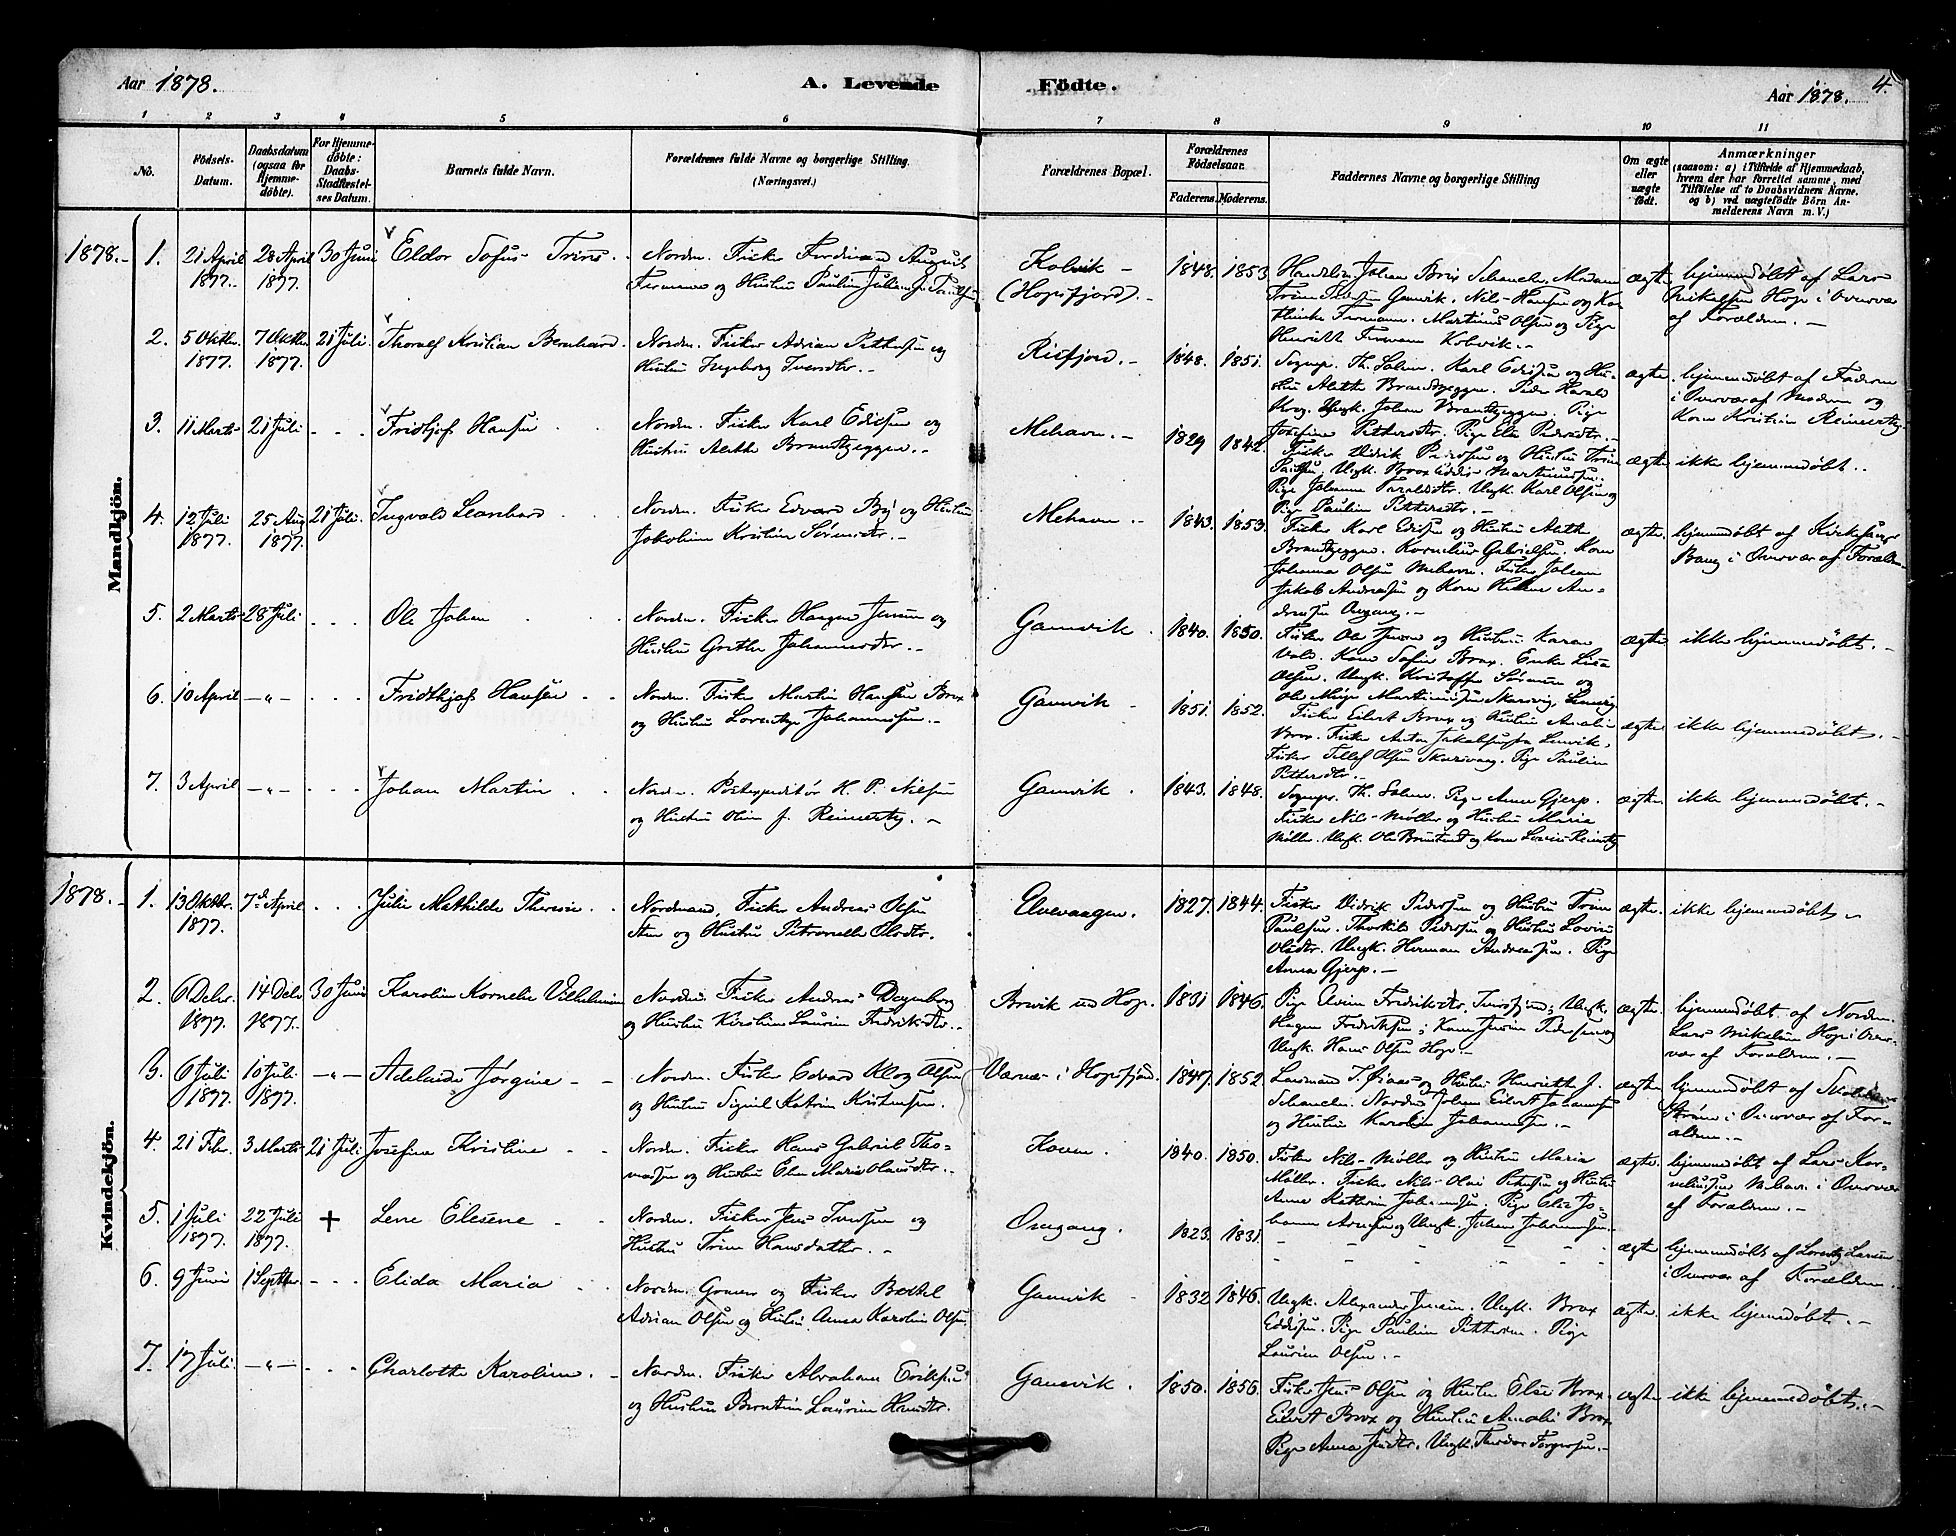 Aar 1878.
A. Levende Födte.
Aar 1878.
4.
1 2 3 4 5 6 7 8 9 10 11
No.
Födsels-Datum.
Daabsdatum (ogsaa for Hjemme-döbte).
For Hjemme-döbte: Daabs-Stadfæstel-ses Datum.
Barnets fulde Navn.
Forældrenes fulde Navne og borgerlige Stilling.
(Næringsvei.)
Forældrenes Bopæl.
Forældrenes Födselsaar.
Faderens. Moderens.
Faddernes Navne og borgerlige Stilling
Om ægte eller uægte födt.
Anmærkninger
(saasom: a) i Tilfælde af Hjemmedaab,
hvem der har forrettet samme, med
Tilföielse af to Daabsvidners Navne,
og b) ved uægtefödte Börn An-
melderens Navn m. V.)
Mandkjön.
1878.- 1. 21 April 1877. 28 April 1877. 30 Juni Eldor Sofus
Nordm. Fisker Ferdinand August
og Hustru
Kolvik - (Hopsfjord).-
1848. 1853
Johan Brix Schanche. Madam
Gamvik. Nils Hansen og
Martinus Olsen og Pige
Kolvik.-
ægte hjemmedøbt af Lars
Mikalsen Hop i Overvær
af Forældrene.-
2. 5 Oktbr. 1877. 7 Oktbr. 1877. 21 Juli. Thoralf Kristian Bernhard.
Nordm. Fisker Adrian Pettersen og
Hustru Ingeborg Iversdtr.-
Risfjord.-
1848. 1851.
Sognepr. Th. Solem. Karl Edissen og Hu-
stru Alette Brandtzeggen. Peder Harald
Krog. Ungk. Johan Brandtzeggen. Pige
Josefine Pettersdtr. Pige Else Pedersdtr.-
ægte. hjemmedøbt af Faderen
i Overvær af Moderen og
Kone Kristian Reinertz.
3. 11 Marts 21 Juli - - - Fridtjof Hansen
Nordm. Fisker Karl Edissen og
Hustru Alette Brandtzeggen.-
Mehavn.-
1829 1842.
Fisker Didrik Pedersen og Hustru Trine
Paulsen. Ungk.
Pige Johanna Ungk. Karl Olsen og
Pige Pauline Pettersdtr.-
ægte. ikke hjemmedøbt..
4. 12 Juli 1877. 25 Aug 1877. 21 Juli. Ingvald Leonhard
Nordm. Fisker Edvard By og Hustru
Jakobine Kristine Sørensdtr.-
Mehavn.-
1843. 1853.
Fisker Karl Edissen og Hustru Alette
Brandtzeggen. Kornelius Gabrielsen. Kone
Johanna Olsen Mehavn. Fisker Johan
Jakob Andreassen og Kone Helene An-
dreassen Omgang.-
ægte. hjemmedøbt af Kirkesanger
Bang i Overvær af Forældre.
5. 2 Marts 28 Juli - - - Ole Johan
Nordm. Fisker Haagen Jensen og
Hustru Grethe Johannesdtr.-
Gamvik.
1840. 1850.
Fisker Ole Jensen og Hustru Karen
Vold. Kone Sofie Brox. Enke Lisa
Olsen. Ungk. Kristoffer Sørensen og
Ole
ægte. ikke hjemmedøbt.-
6. 10 April -"- - - - Fridthjof Hansen
Nordm. Fisker Martin Hansen Brox
og Hustru Lorentze Johannesen.-
Gamvik -
1851. 1852.
Fisker Eilert Brox og Hustru Amalie
Brox. Fisker Anton Jakobsen fra Lenvik.
Fisker Tellef Olsen Pige Pauline
Pettersdtr.-
ægte. ikke hjemmedøbt.-
7. 3 April -"- - - - Johan Martin
Nordm. Postexpeditør H. P. Nilsen
og Hustru Oline f. Reinertz.-
Gamvik.
1843. 1848.
Sognepr. Th. Solem. Pige Anna Gjerp.
Fisker Nils Møller og Hustru Maria
Møller. Ungk. Ole og Kone Lovise Reinertz
ægte. ikke hjemmedøbt.-
Kvindekjön.
1878.- 1. 13 Oktbr. 1877. 7de April - - - Julie Mathilde Therese
Nordmand, Fisker Andreas Olsen
og Hustru Petronelle Olsdtr.
Elvevaagen.
1827. 1844.
Fisker Didrik Pedersen og Hustru Trine
Paulsen. Thorkild Pedersen og Hustru Lovise
Olsdtr. Ungk. Herman Andreassen. Pige
Anna Gjerp.-
ægte. ikke hjemmedøbt.-
2. 6 Debr. 1877. 14 Debr 1877. 30 Juni Karoline Kornelie Vilhelmine
Nordm. Fisker Andreas
og Hustru Kirstine Laurine Fredriksdtr..
Brevik ved Hop.
1831 1846.
Pige Elvine Fredriksdtr. Ungk.
Hagen Fredriksen; Kone Pedersen og
Ungk. Hans Olsen Hop.-
ægte. hjemmedøbt af Nordm.
Lars Mikalsen Hop i Over-
vær af Forældrene.-
3. 6 Juli 1877. 10 Juli 1877. -"- Adelaide Jørgine - -
Nordm. Fisker Edvard Klog Olsen
og Hustru Sigrid Katrine Kristensen.
i Hopsfjord.
1847. 1852.
og Hustru Henriette J.
Schanche. Nordm. Johan Eilert Johannesen
og Hustru Karoline Johannesen.-
ægte. hjemmedøbt af
Strøm i Overvær af For-
ældrene.-
4. 21 Febr. 3 Marts 21 Juli Josefine Kristine - -
Nordm. Fisker Hans Gabriel Tho-
massen og Hustru Elen Marie Olausdtr.-
Koven.
1840. 1850.
Fisker Nils Møller og Hustru Maria
Møller. Fisker Nils Olai Petersen og Hustru
Anna Kathrine Johannesen. Pige Else Jo-
hanne Arnesen og Ungk. Johan Johannesen.-
ægte. hjemmedøbt af Lars Kor-
neliussen Mehavn i Overvær
af Forældrene.-
5. 1 Juli 1877. 22 Juli 1877. + Lene Elesene - -
Nordm. Fisker Jens Iversen og
Hustru Trine Hansdatter.-
Omgang.
1823. 1831.
- - - - - -
ægte hjemmedøbt af Lorentz Larsen
i Overvær af Forældrene.
6. 9 Juni 1 Septbr. - - - Elida Maria
Nordm. Graver og Fisker Bertel
Adrian Olsen og Hustru Anna Karoline Olsen.
Gamvik -
1832 1846.
Ungk. Alexander Jensen. Ungk. Brox
Eddissen. Pige Pauline Pettersen. Pige
Laurine Olsen.-
ægte. ikke hjemmedøbt.-
7. 17 Juli. -"- - - - Charlotte Karoline.-
Nordm. Fisker Abraham Eriksen
og Hustru Berntine Laurine
Gamvik.
1850. 1856.
Fisker Jens Olsen og Hustru Else Brox.
Eilert Brox og Hustru Amalie Brox
Pige Anna Ungk. Theodor Torgersen.-
ægte ikke hjemmedøbt.-